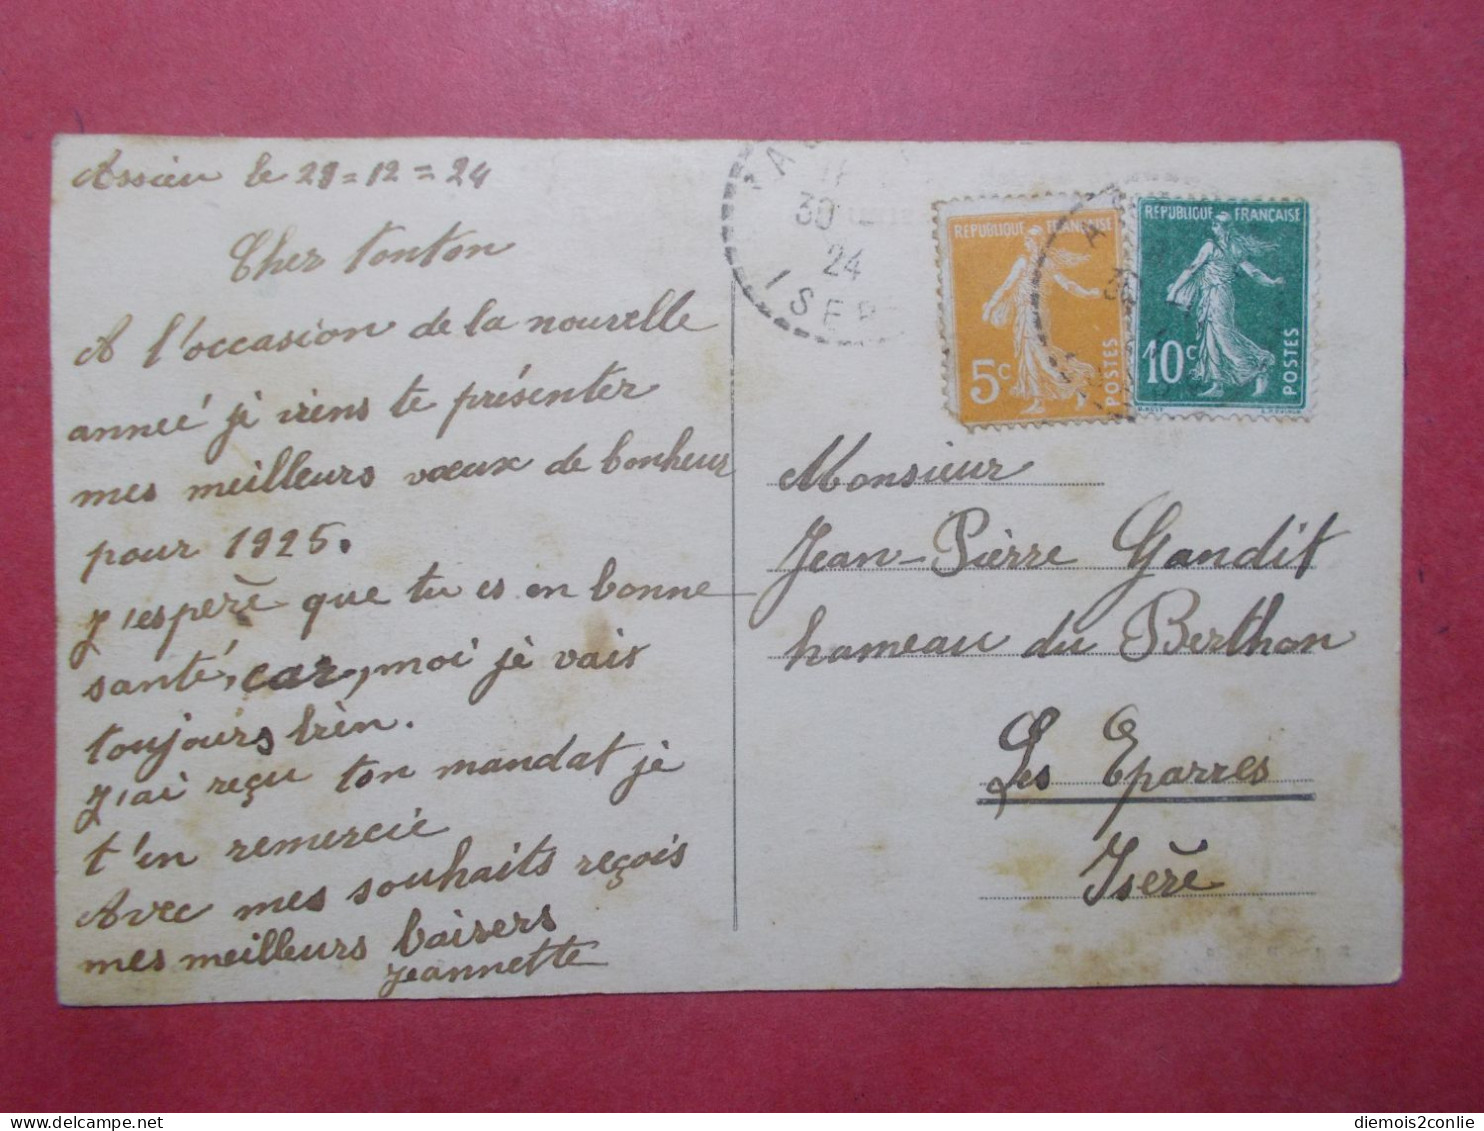 Assieu le 29=12=24
Cher tonton
A l'occasion de la nouvelle
anneé je viens te présenter
mes meilleurs voeux de bonheur
pour 1925.
J'espère que tu es en bonne
santé, car, moi je vais
toujours bien.
J'ai reçu ton mandat je
t'en remercie
Avec mes souhaits reçois
mes meilleurs baisers
Jeannette
30
24
ISERE
REPUBLIQUE FRANÇAISE
5c
POSTES
REPUBLIQUE FRANÇAISE
10c
POSTES
30
Monsieur
Jean-Pierre Gandit
hameau du Berthon
Les Eparres
Isère
diemois2conlie